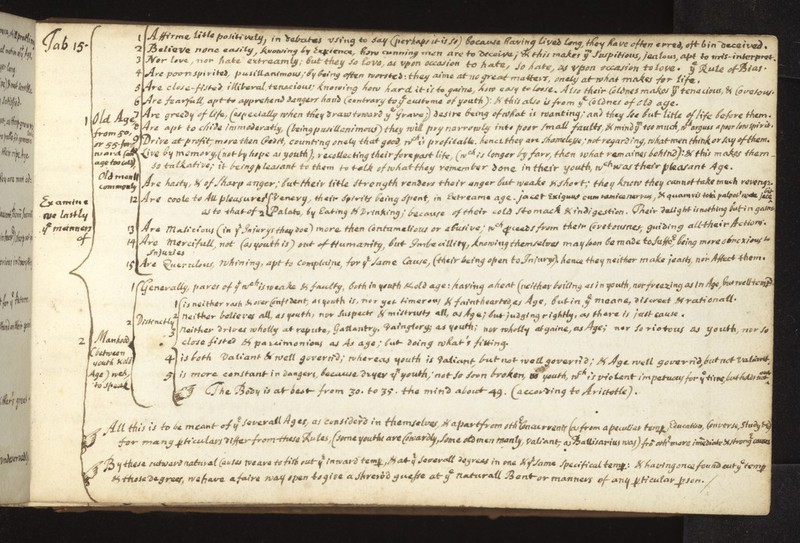 Tab 15.
Examine
we lastly
yͤ manners
of
1 Old Age
from 50.
or 55. for-
ward (at wch
age too call'd
Old men
commonly
1 Affirme little positively, in debates using to say (perhaps it is so) because having lived long, they have often erred, oft bin deceived.
2 Believe none easily, knowing by Expience, how cunning men are to deceive; & this makes yͫ Suspitious, Jealous, apt to mis-interpret.
3 Nor love, nor hate extreamly; but they so love, as upon occasion to hate, so hate, as upon occasion to love. yͤ Rule of Bias.
4 Are poor spirited, pusillanimous; by being often worsted; they aime at no great matters, onely at what makes for life.
5 Are close-fisted illiberal tenacious: knowing how hard it is to gaine, how easy to loose. Also their Coldnes makes yͫ tenacious, & Covetous.
6 Are fearfull, apt to apprehend dangers hand (contrary to yͤ custome of youth): & this also is from yͤ coldnes of old age.
7 Are greedy of life, (especially when they draw toward yͤ grave) desire being of what is wanting; and they see but little of life before them.
8 Are apt to chide immoderatly, (being pusillanimous) they will pry narrowly into poor small faults, & mind yͫ too much, wͨʰ argues a poor low spirit.
9 Drive at profit, more then Good, counting onely that good wͨʰ is profitable. hence they are Shameless; not regarding, what men think or say of them.
Live by memory, (not by hope as youth), recollecting their forepart life, (wͨʰ is longer by farr, then what remaines behind): & this makes them
so talkative; it being pleasant to them to talk of what they remember done in their youth, wͨʰ was their pleasant Age.
Are hasty, & of Sharp anger; but their little strength renders their anger but weake & short; they know they cannot take much revenge.
12 Are coole to All pleasures 1 Venery, their Spirits being spent, in extreame age. jacet exiguus cum ramice nervus, & quamvis tota palpetur nocte jacebit
as to that of 2 Palate, by Eating & Drinking; because of their cold Stomack & indigestion. Their delight is nothing but in gaine
13 Are Malicious (in yͤ Injurys they doe) more then Contumelious or abusive; wͨʰ pceeds from their Covetousnes, guiding all their Actions.
14 Are Mercifull, not (as youth is) out of Humanity, but Imbecillity, knowing themselves may soon be made to Suffer, being more obnoxious to
Injuries
15 Are Querulous, whining, apt to complaine, for yͤ same Cause, (their being open to Injury). hence they neither make jeasts, nor Affect them.
2 Manhood
(between
youth & old
Age) wch
to speak
1 Generally, pares of yͭ wͨʰ is weake & faulty, both in youth & old age: having a heat (neither boiling as in youth, nor freezing as in Age, but well temp'd
2 Distinctly
1 is neither rash & over Confident, as youth is, nor yet timerous & fainthearted, as Age, but in yͤ meane, discreet & rationall.
2 neither believes all, as youth, nor Suspects & mistrusts all, as Age; but judging rightly, as there is just cause.
3 neither drives wholly at repute, Gallantry, Vainglory, as youth; nor wholly at gaine, as Age; nor so riotous as youth, nor so
close fisted & parcimonious as As age; but doing what's fitting.
4 is both Valiant & well govern'd; whereas youth is Valiant but not well govern'd; & Age well govern'd, but not Valiant.
5 is more constant in dangers, because dryer yͫ youth; not so soon broken, as youth, wͨʰ is violent impetuous for yͤ time, but holds not.
The Body is at best from 30. to 35. the mind about 49. (according to Aristotle).
All this is to be meant of yͤ severall Ages, as consider'd in themselves, & apart from othͬ Concurrents (as from a peculiar temp, Education, Converse, Study &c)
for many pticulars differ from these Rules, (some youth are Cowardly, some old men manly, valiant, as Bellisarius was) frō othͬ more imediate & strongͬ causes
By these outward naturall Causes we are to fish out yͤ inward temp, & at yͤ severall degrees in one & yͤ same Specificall temp: & having once found out yͤ temp
& those degrees, we have a faire way open to give a shrew'd guesse at yͤ naturall Bent or manners of any pticular pson.